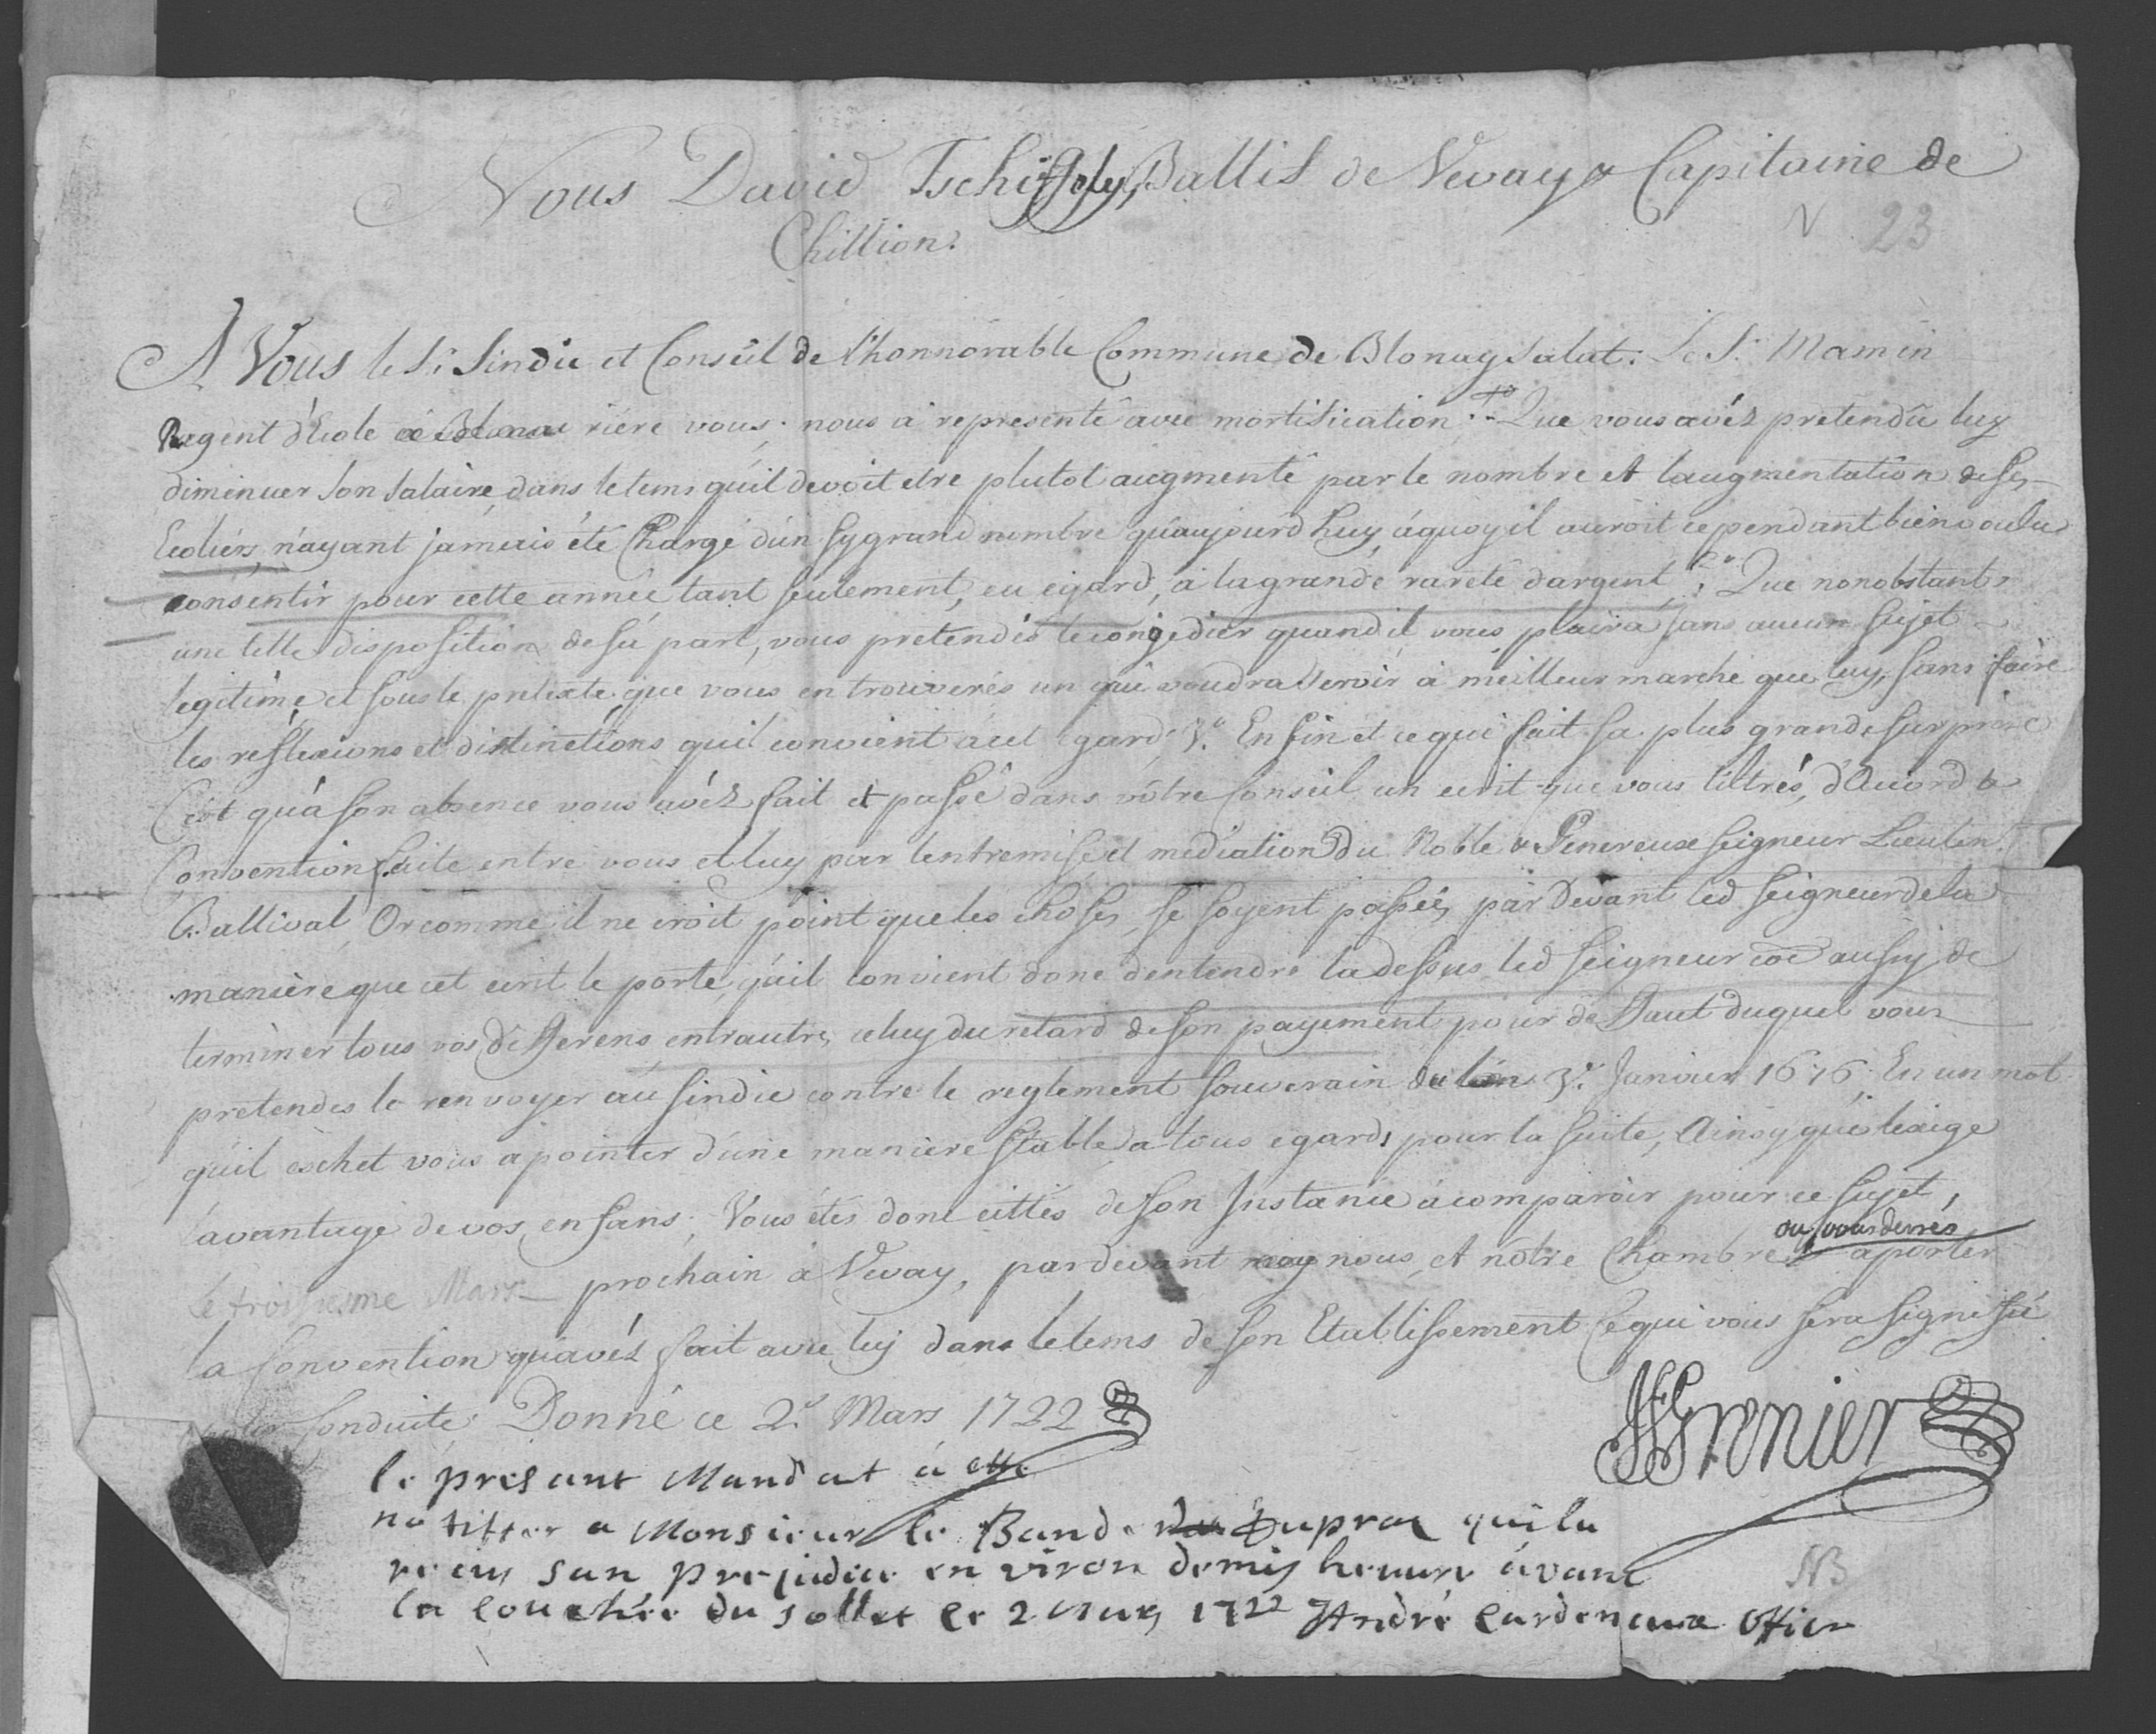 Nous David Tschiffely, Ballif de Vevay & Capitaine de
Chillion.
N 23
A Vous le Sr. Sindic et Conseil de l'honnorable Commune de Blonay Salut. Le Sr. Mamin
Regent d'Ecole riere vous, nous a representé avec mortification: 1o Que vous avéz pretendu luy
diminuer son salaire, dans le tems qu'il devoit etre plutot augmenté par le nombre et laugmentation de ses
Ecoliers, n'ayant jamais été Chargé d'un sy grand nombre qu'aujourdhuy, aquoy il auroit cependant bien voulu
consentir pour cette année tant seulement, eu egard, a la grande rareté dargent, 2o Que nonobstant
une telle disposition de sa part, vous pretendés le congedier quand il vous plaira sans aucun sujet
legitime, et sous le pretexte que vous en trouverés un qui voudra servir à meilleur marché que luy, sans faire
les reflexions et distinctions quil convient à cet egard, 3o. Enfin et ce qui fait sa plus grande surprise
C'est qu'a son absence vous avéz fait et passé dans vôtre Conseil un ecrit que vous tiltrés, d'Acord &
Convention faite entre vous et luy par lentremise et mediation du Noble & Genereux Seigneur Lieuten.t
Ballival, Or comme il ne croit point que les choses se soyent passées par devant led Seigneur de la
maniere que cet ecrit le porte, qu'il convient donc dentendre la dessus led Seigneur coe aussy de
terminer tous vos differens, entrautres celuy du retard de son payement pour defaut duquel vous
pretendes le renvoyer au Sindic contre le reglement souverain du 3e. Janvier 1676. En un mot
qu'il eschet vous apointer d'une maniere stable a tous egards pour la suite, Ainsy qu'éxige
lavantage de vos enfans; Vous étes donc cittés de son Instance à comparoir pour ce sujet,
le troisiesme Mars prochain à Vevay, pardevant nous et nôtre Chambre ou vous devrés aporter
la Convention qu'avéz fait avec luy dans le tems de son Etablissement Ce qui vous sera signifié
pour Conduite. Donné ce 2e. Mars 1722
Grenier
le presant Mandat à ette
notiffer a Monsieur le Banderet Dupraz qui la
recus san prejudice en viron demy heure avant
la couchée du sollet le 2 Mars 1722 André Cardeneaux Officr
NB